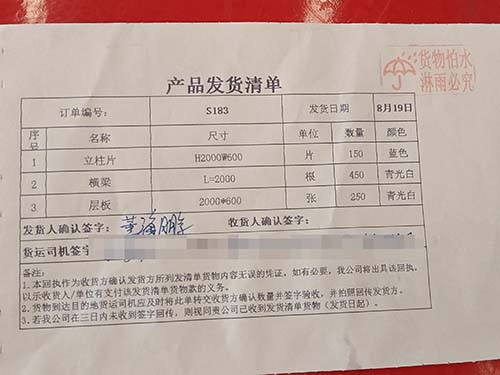 货物怕水
淋雨必究
产品发货清单
订单编号： S183 发货日期 8月19日
序号 名称 尺寸 单位 数量 颜色
1 立柱片 H2000W600 片 150 蓝色
2 横梁 L=2000 根 450 青光白
3 层板 2000*600 张 250 青光白
发货人确认签字： 收货人签字：
货运司机签字
备注：
1.本回执作为收货方确认发货方所列发清单货物内容无误的凭证，如有必要，我公司将出具该回执，
以示收货人/单位有支付该发货清单货物款的义务。
2.货物到达目的地货运司机应及时将此单转交收货方确认数量并签字验收，并拍照回传发货方。
3.若我公司在三日内未收到签字回传，则视同贵公司已收到发货清单货物（发货日起）。